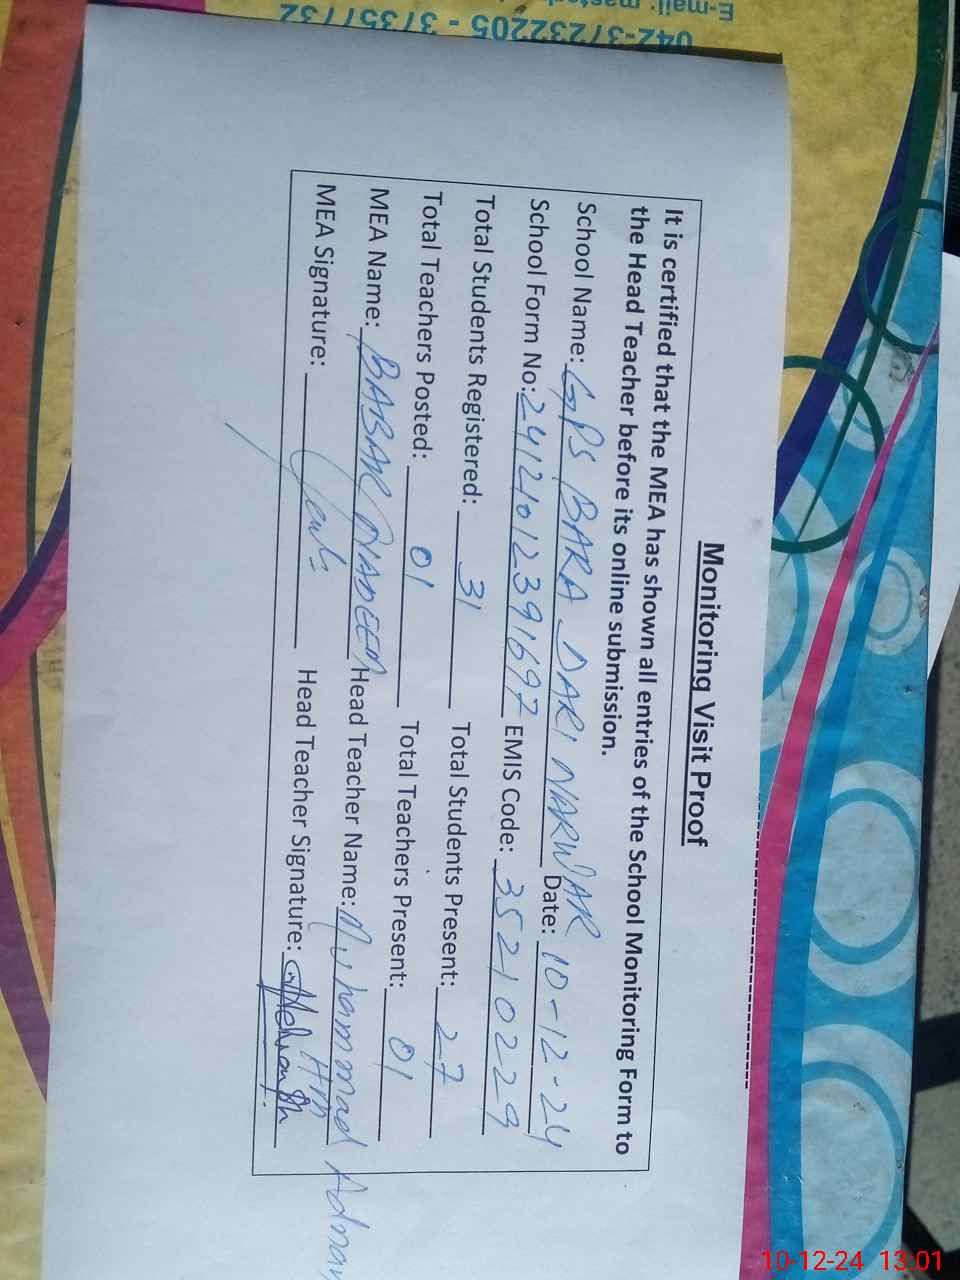 E-mail:
042-37232205 - 37357732
Monitoring Visit Proof
It is certified that the MEA has shown all entries of the School Monitoring Form to
the Head Teacher before its online submission.
School Name: GPS BARA DARI NARWAR Date: 10-12-24
School Form No: 24121012391697 EMIS Code: 35210229
Total Students Registered: 31 Total Students Present: 27
Total Teachers Posted: 01 Total Teachers Present: 01
MEA Name: BABAR NADEEM Head Teacher Name: Muhammad Adnan
MEA Signature: Head Teacher Signature:
10-12-24 13:01